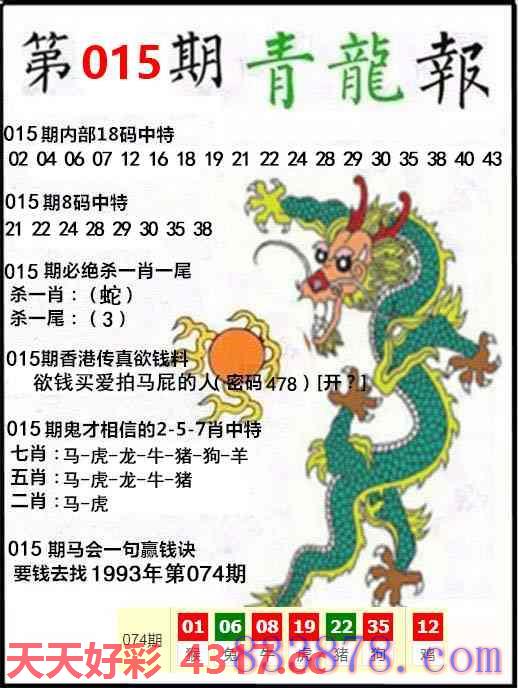 第015期青龍報
015期内部18码中特
02 04 06 07 12 16 18 19 21 22 24 28 29 30 35 38 40 43
015期8码中特
21 22 24 28 29 30 35 38
015期必绝杀一肖一尾
杀一肖：（蛇）
杀一尾：（3）
015期香港传真欲钱料
欲钱买爱拍马屁的人(密码478)[开？]
015期鬼才相信的2-5-7肖中特
七肖：马-虎-龙-牛-猪-狗-羊
五肖：马-虎-龙-牛-猪
二肖：马-虎
015期马会一句赢钱诀
要钱去找1993年第074期
074期 01 06 08 19 22 35 12
猴 兔 牛 虎 猪 狗 鸡
天天好彩 4317.cc
832878.com